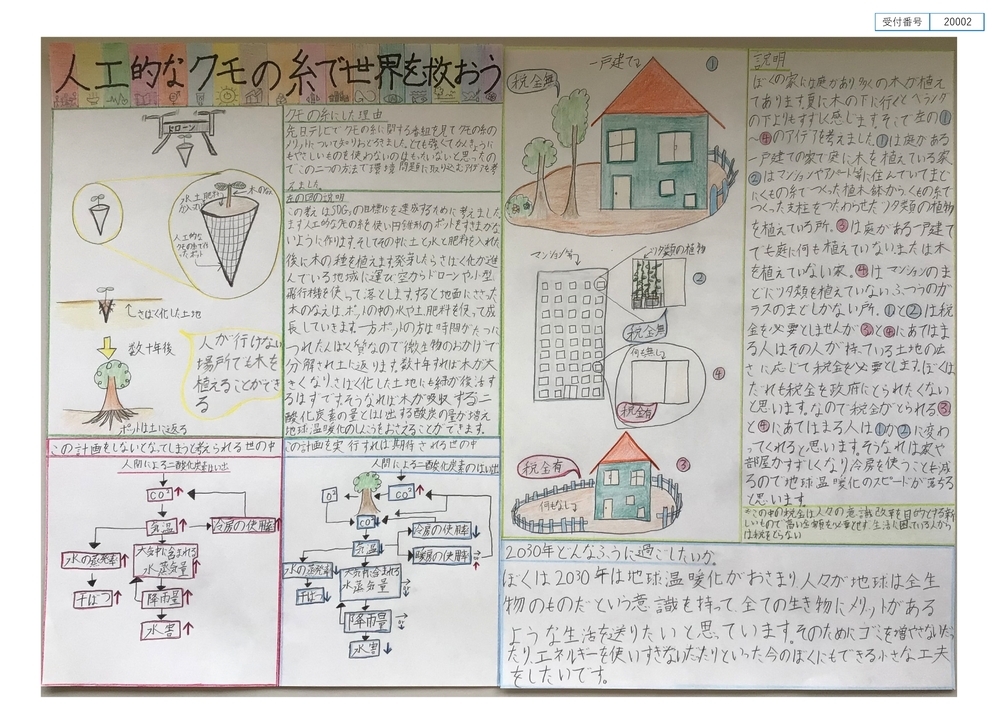 受付番号 20002
人工的なクモの糸で世界を救おう
ドローン
水、土、肥料
木のなえ
人工的な
クモの糸で
つくった
ポット
さばく化した土地
数十年後
人が行けない
場所でも木を
植えることができ
る
ポットは土に返る
クモの糸にした理由
先日テレビでクモの糸に関する番組を見てクモの糸の
メリットについて知りおどろきました。とても強くてかんきょうに
もやさしいものを使わないのはもったいないと思ったの
でこの二つの方法で環境問題に取り込むアイデアを考
えました。
左の図の説明
この考えはSDGsの目標15を達成するために考えました
まず人工的なクモの糸を使い円錐形のポットをすきまがな
いように作ります。そしてその中に土と水と肥料を入れた
後に木の種を植えます。発芽したらさばく化が進
んでいる地域に運び、空からドローンや小型
飛行機を使って落とします。すると地面にささった
木のなえは、ポットの中の水や土、肥料を使って成
長していきます。一方ポットの方は時間がたつに
つれたんぱく質なので微生物のおかげで
分解され土に返ります。数十年すれば木が大
きくなり、さばく化した土地にも緑が復活す
るはずです。そうなれば木が吸収する二
酸化炭素の量とはい出する酸素の量が増え
地球温暖化のしんこうをおさえることができます。
この計画をしないとなってしまうと考えられる世の中
人間による二酸化炭素はい出
CO² ↑
気温 ↑
冷房の使用率 ↑
水の蒸発率 ↑
大気中に含まれる
水蒸気量 ↑
干ばつ ↑
降雨量 ↑
水害 ↑
この計画を実行すれば期待される世の中
人間による二酸化炭素のはい出
O²
CO² ↑
CO² ↓
冷房の使用率 ↓
気温 ↓
暖房の使用率
水の蒸発率 ↓
大気中に含まれる
水蒸気量
干ばつ ↓
降雨量
水害 ↓
一戸建て
①
税金無
マンション等
ツタ類の植物
②
税金無
何も無し
④
税金有
税金有
③
何もなし
説明
ぼくの家には庭があり多くの木が植え
てあります。夏に木の下に行くとベランダ
の下よりもすずしく感じます。そこで左の①
~④のアイデアを考えました。①は庭がある
一戸建ての家で庭に木を植えている家
②はマンションやアパート等に住んでいてまど
にくもの糸でつくった植木鉢からくもの糸で
つくった支柱をつたわらせたツタ類の植物
を植えている所。③は庭がある一戸建て
でも庭に何も植えていない、または木
を植えていない家。④はマンションのま
どにツタ類を植えていない、ふつうのガ
ラスのまどしかない所。①と②は税
金を必要としませんが③と④にあてはま
る人はその人が持っている土地の広
さに応じて税金を必要とします。ぼくは
だれも税金を政府にとられたくない
と思います。なので税金がとられる③
と④にあてはまる人は①か②に変わ
ってくれると思います。そうなれば家や
部屋がすずしくなり、冷房を使うことも減
るので地球温暖化のスピードが落ちる
と思います。
*この中の税金は人々の意識改革を目的とする新
しいもので高い金額も必要とせず、生活に困っている人から
は税をとらない
2030年どんなふうに過ごしたいか。
ぼくは2030年は地球温暖化がおさまり人々が地球は全生
物のものだという意識を持って、全ての生き物にメリットがある
ような生活を送りたいと思っています。そのためにゴミを増やさないだっ
たり、エネルギーを使いすぎないだったりといった今のぼくにもできる小さな工夫
をしたいです。